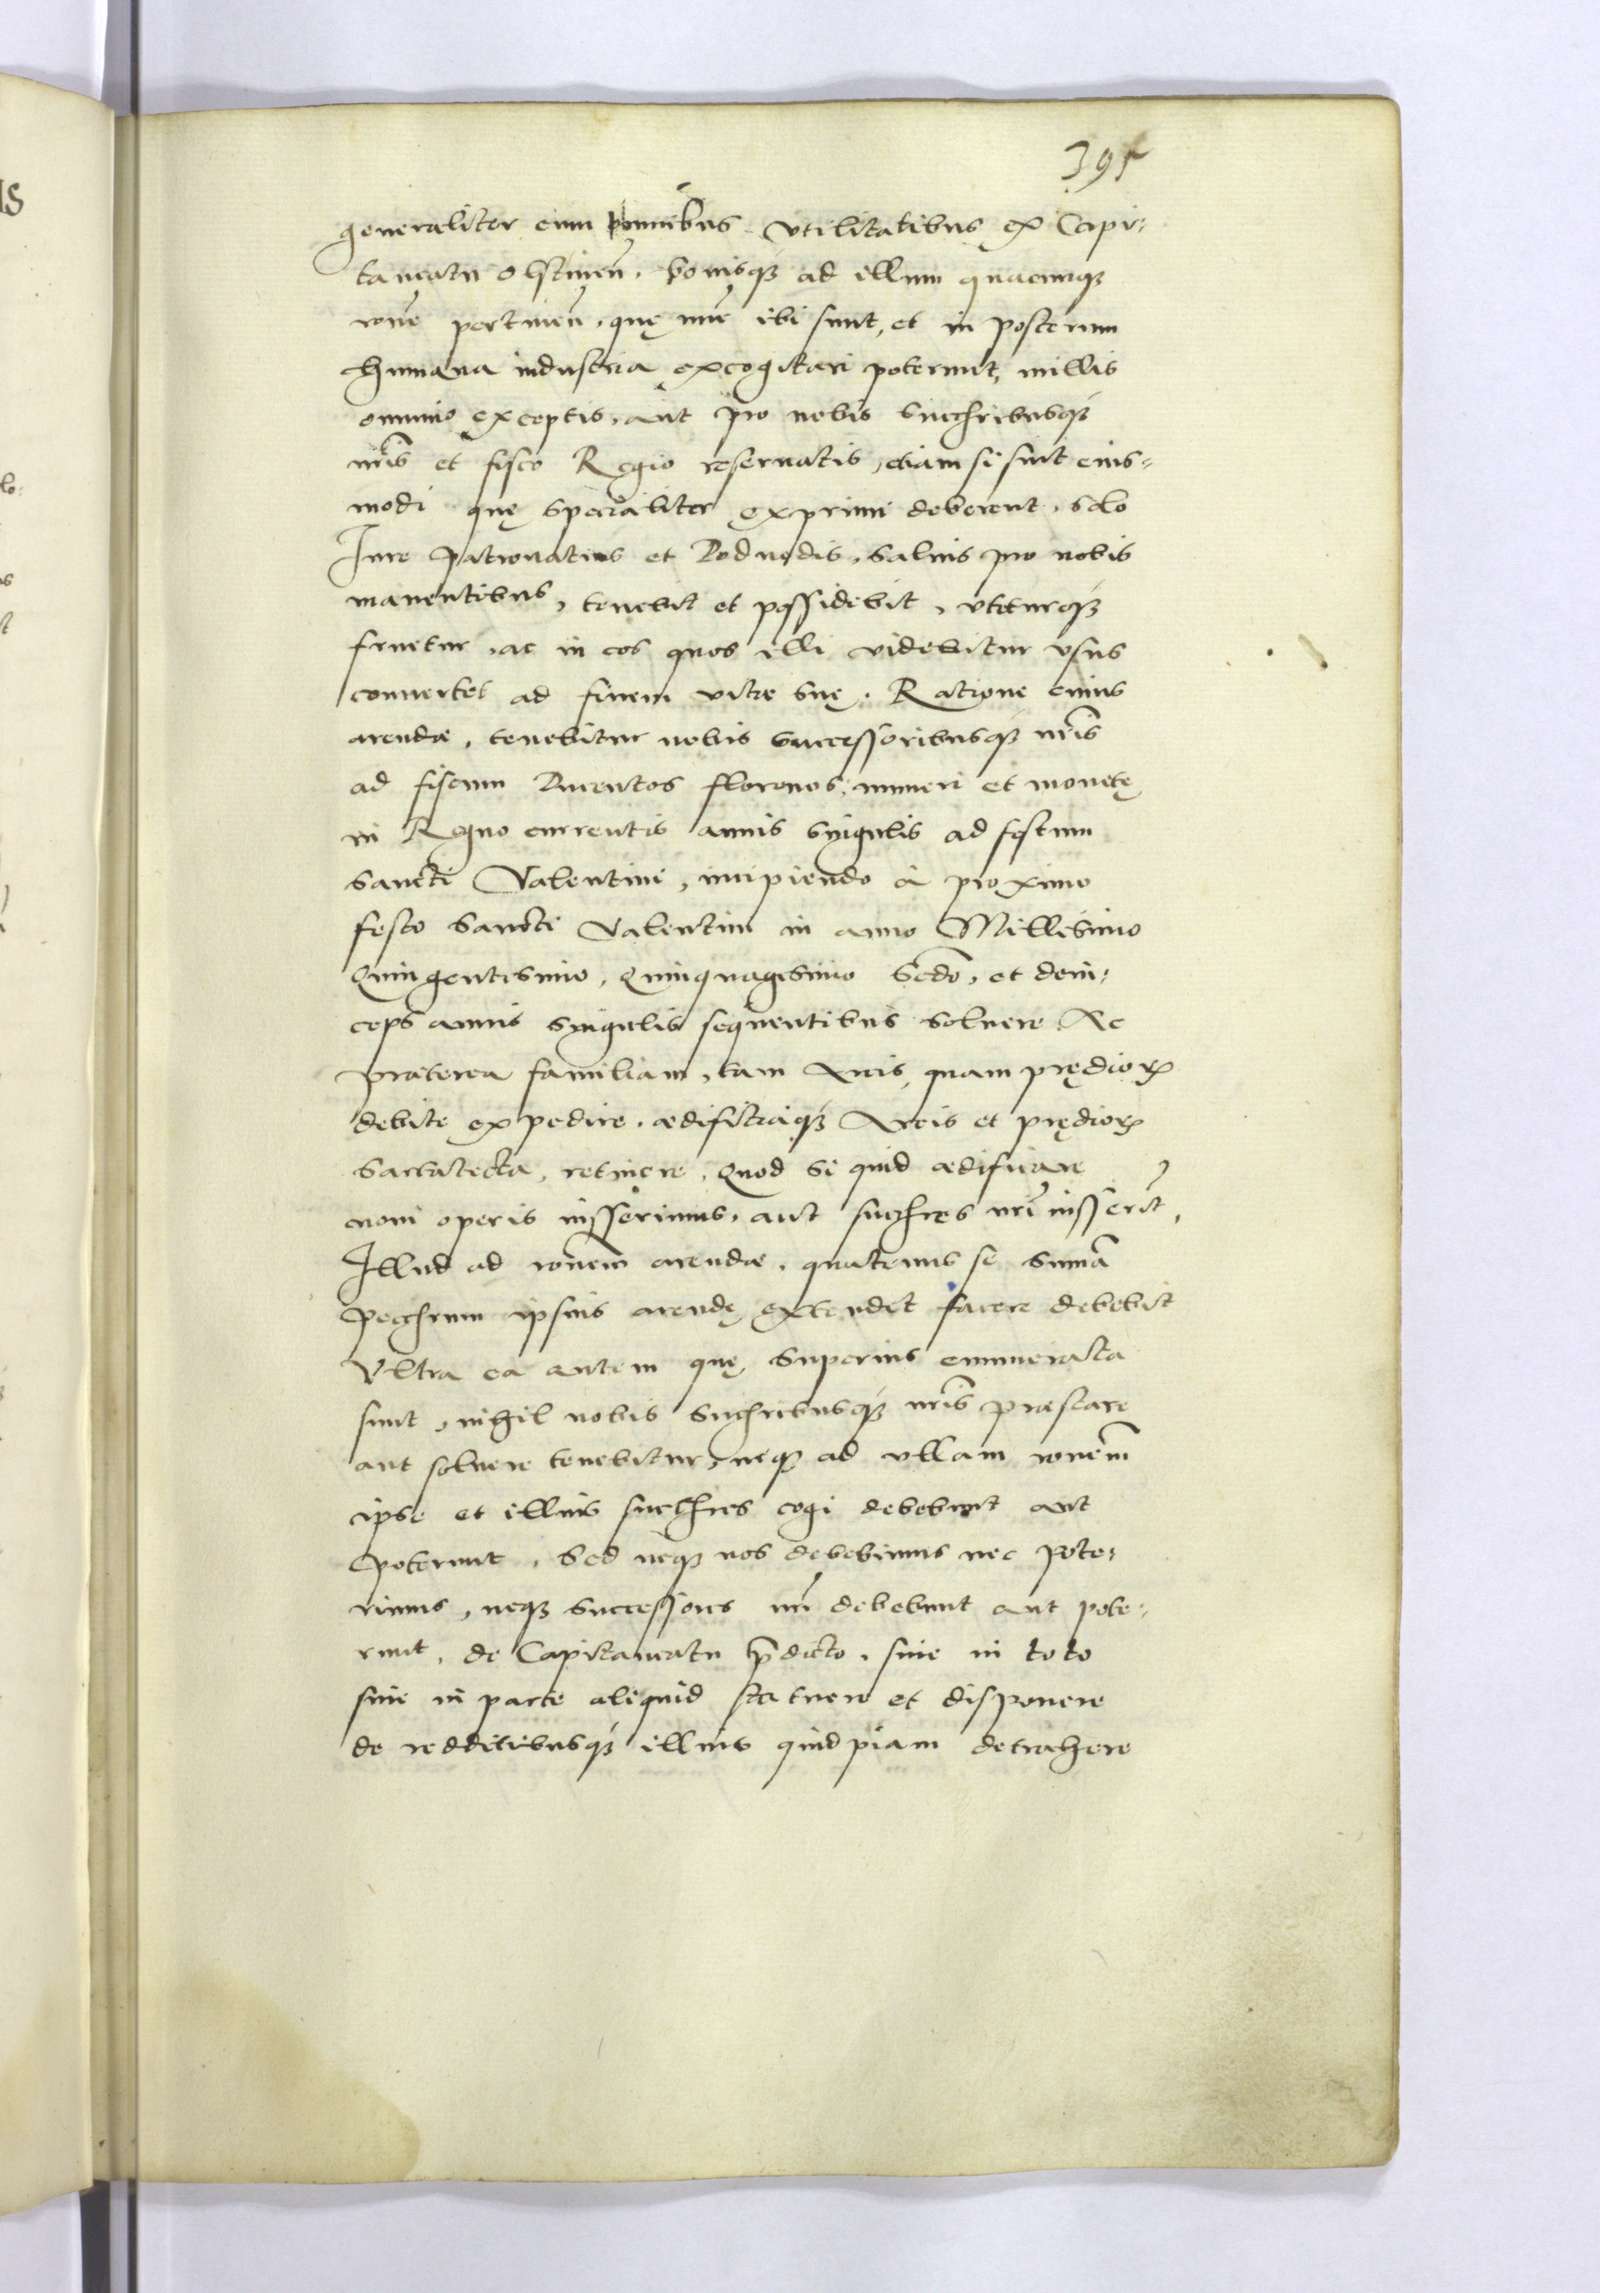 395
generaliter cum omnibus vtilitatibus ex Capi-
taneatu Olstinen̄. bonisq̃ ad illum quacumq̃
rōne pertinen̄, quę nūc ibi sunt, et in posterum
humana industria excogitari poterunt, nullis
omnino exceptis, aut pro nobis succ̄ribusq̃
nr̄is et fisco Regio reseruatis, etiam si sint eius-
modi quę specialiter exprimi deberent, solo
Iure patronatus et Podwodis, saluis pro nobis
manentibus, tenebit et possidebit, vteturq̃
fruetur, ac in eos quos illi videbitur vsus
conuertet ad finem vitae suę. Ratione cuius
arendae, tenebitur nobis successoribusq̃ nr̄is
ad fiscum Ducentos florenos, numeri et monetę
in Regno currentis annis singulis ad festum
Sancti Valentini, incipiendo à proximo
festo Sancti Valentini in anno Millesimo
Quingentesimo, Quinquagesimo Secdo, et dein-
ceps annis singulis sequentibus soluere. Ac
praeterea familiam, tam Arcis, quam prędior̄
debite expedire, aedificiaq̃ Arcis et prędior̄
sartatecta, retinere. Quod si quid aedificare
noui operis iusserimus, aut succ̄res nr̄i iusserīt,
Illud ad rōnem arendae, quatenus se summā
pecc̄rum ipsius arendę extendit facere debebit
Vltra ea autem quę superius enumerata
sunt, nihil nobis succ̄ribusq̃ nr̄is praestare
aut soluere tenebitur, neq̃ ad vllam rōnem
ipse et illius succ̄res cogi debebunt aut
poterunt. Sed neq̃ nos debebimus nec pote-
rimus, neq̃ successores nr̄i debebunt aut pote-
runt, de Capitaneatu p̄dicto, siue in toto
siue in parte aliquid statuere et disponere
de redditibusq̃ illius quidpiam detrahere